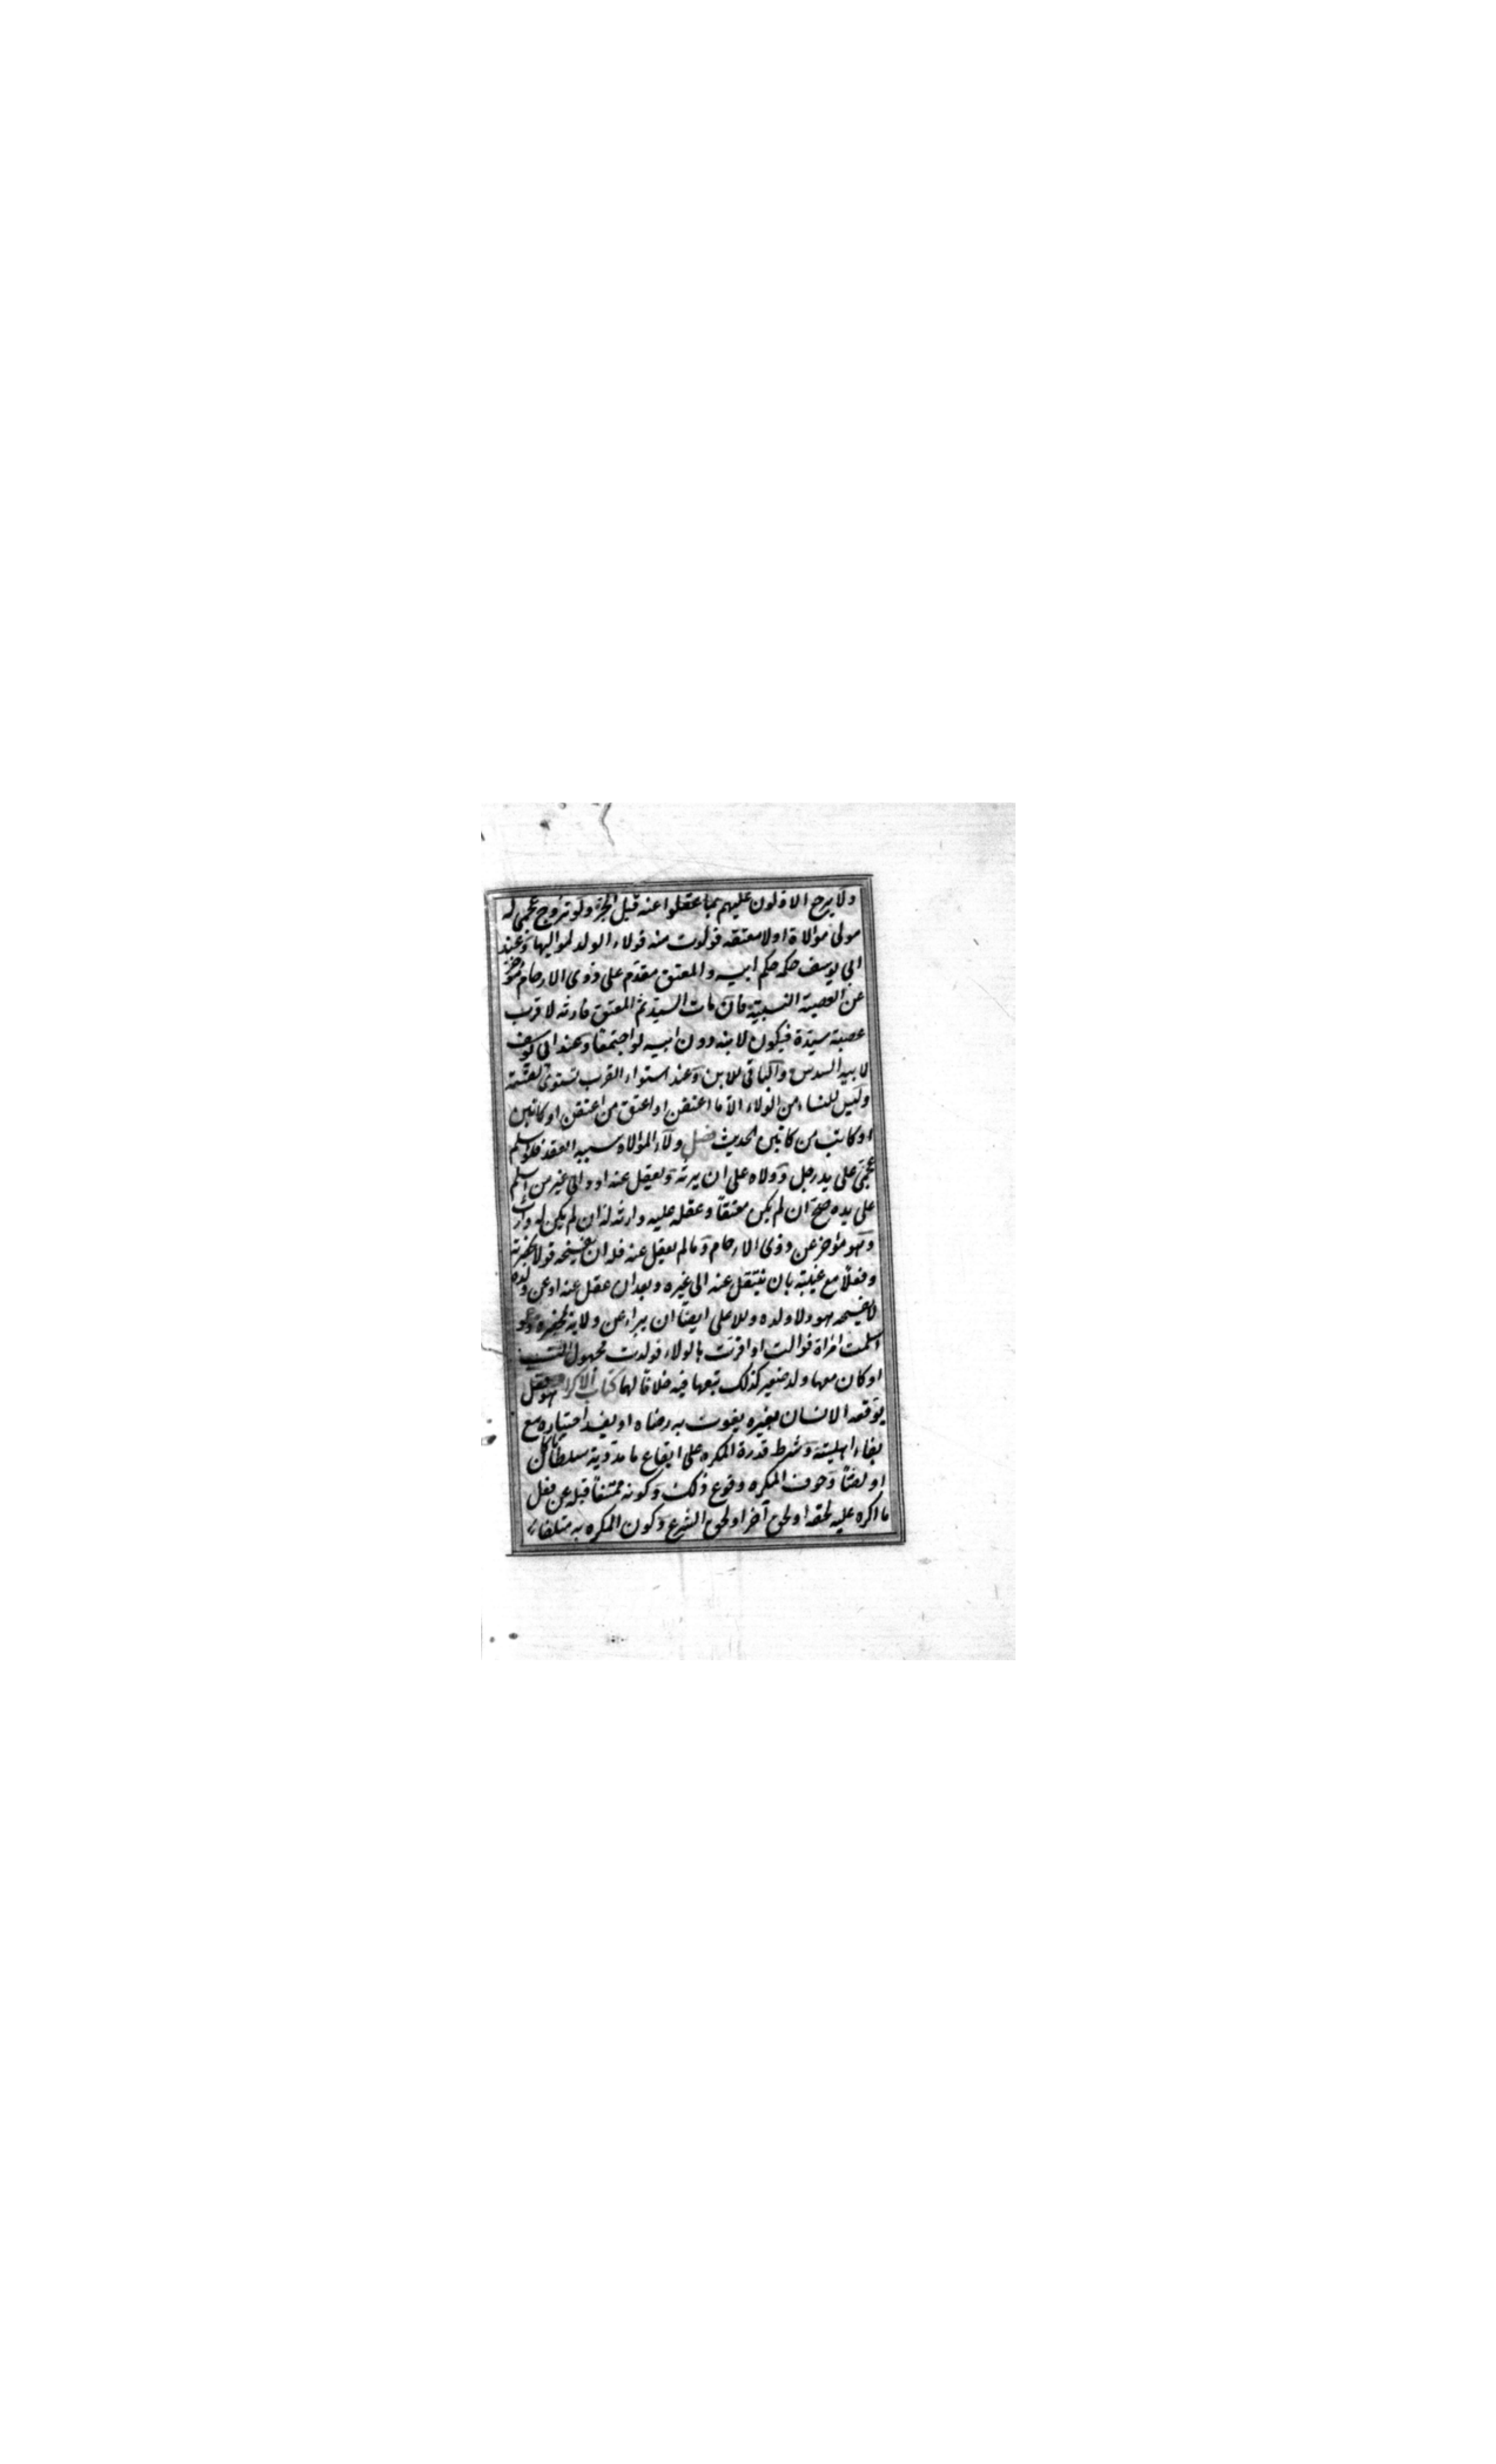 ولا يرجع الاولون عليهم بما عقلوا عنه قبل الجر ولو تزوج عجمي له
مولى موالاة اولا معتقه فولدت منه فولاء الولد لمواليها وعند
ابي يوسف حكمه حكم ابيه والمعتق مقدم على ذوى الارحام مؤخر
عن العصبة النسبية فان مات السيد ثم المعتق فارثه لاقرب
عصبة سيده فيكون لابنه دون ابيه لو اجتمعا وعند ابي يوسف
لابيه السدس والباقي للابن وعند استواء القرب تستوى القسمة
وليس للنساء من الولاء الا ما اعتقن او اعتق من اعتقن او كاتبن
او كاتب من كاتبن الحديث فصل ولاء الموالاة سببه العقد فلو اسلم
عجمي على يد رجل ووالاه على ان يرثه ويعقل عنه او والى غير من اسلم
على يده صح ان لم يكن معتقا وعقله عليه وارثه له ان لم يكن له وارث
وهو مؤخر عن ذوى الارحام وما لم يعقل عنه فله ان يفسخه قولا بحضرته
وفعلا مع غيبته بان ينتقل عنه الى غيره وبعد ان عقل عنه او عن ولده
لا يفسخه هو ولا ولده وللاعلى ايضا ان يبراء عن ولايه بحضرته ولو
اسلمت امراة فوالت او اقرت بالولاء فولدت مجهول النسب
او كان معها ولد صغير كذلك تبعها فيه خلافا لهما كتاب الاكراه هو فعل
يوقعه الانسان بغيره يفوت به رضاه او يفسد اختياره مع
بقاء اهليته وشرط قدرة المكره على ايقاع ما هدد به سلطانا كان
او لصا وخوف المكره وقوع ذلك وكونه ممتنعا قبله عن فعل
ما اكره عليه لحقه او لحق آخر او لحق الشرع وكون المكره به متلفا